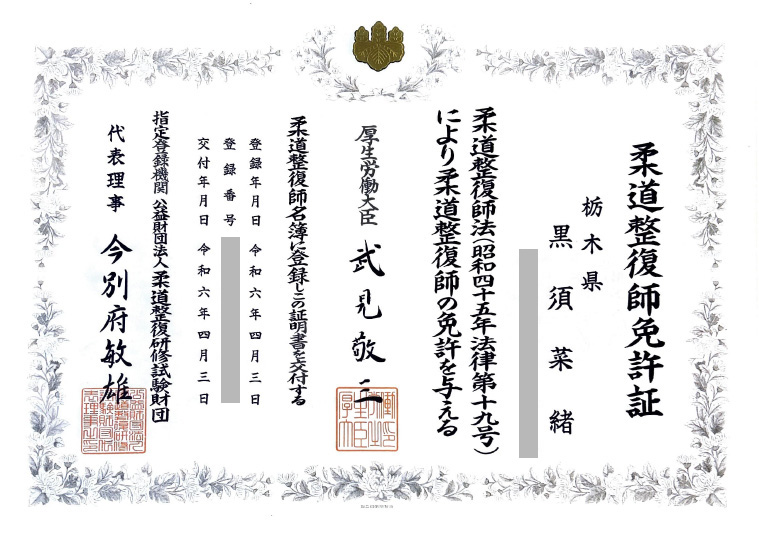 柔道整復師免許証
栃木県
黒須菜緒
柔道整復師法(昭和四十五年法律第十九号)
により柔道整復師の免許を与える
厚生労働大臣 武見敬三
柔道整復師名簿に登録しこの証明書を交付する
登録年月日 令和六年四月三日
登録番号
交付年月日 令和六年四月三日
指定登録機関 公益財団法人 柔道整復研修試験財団
代表理事 今別府敏雄